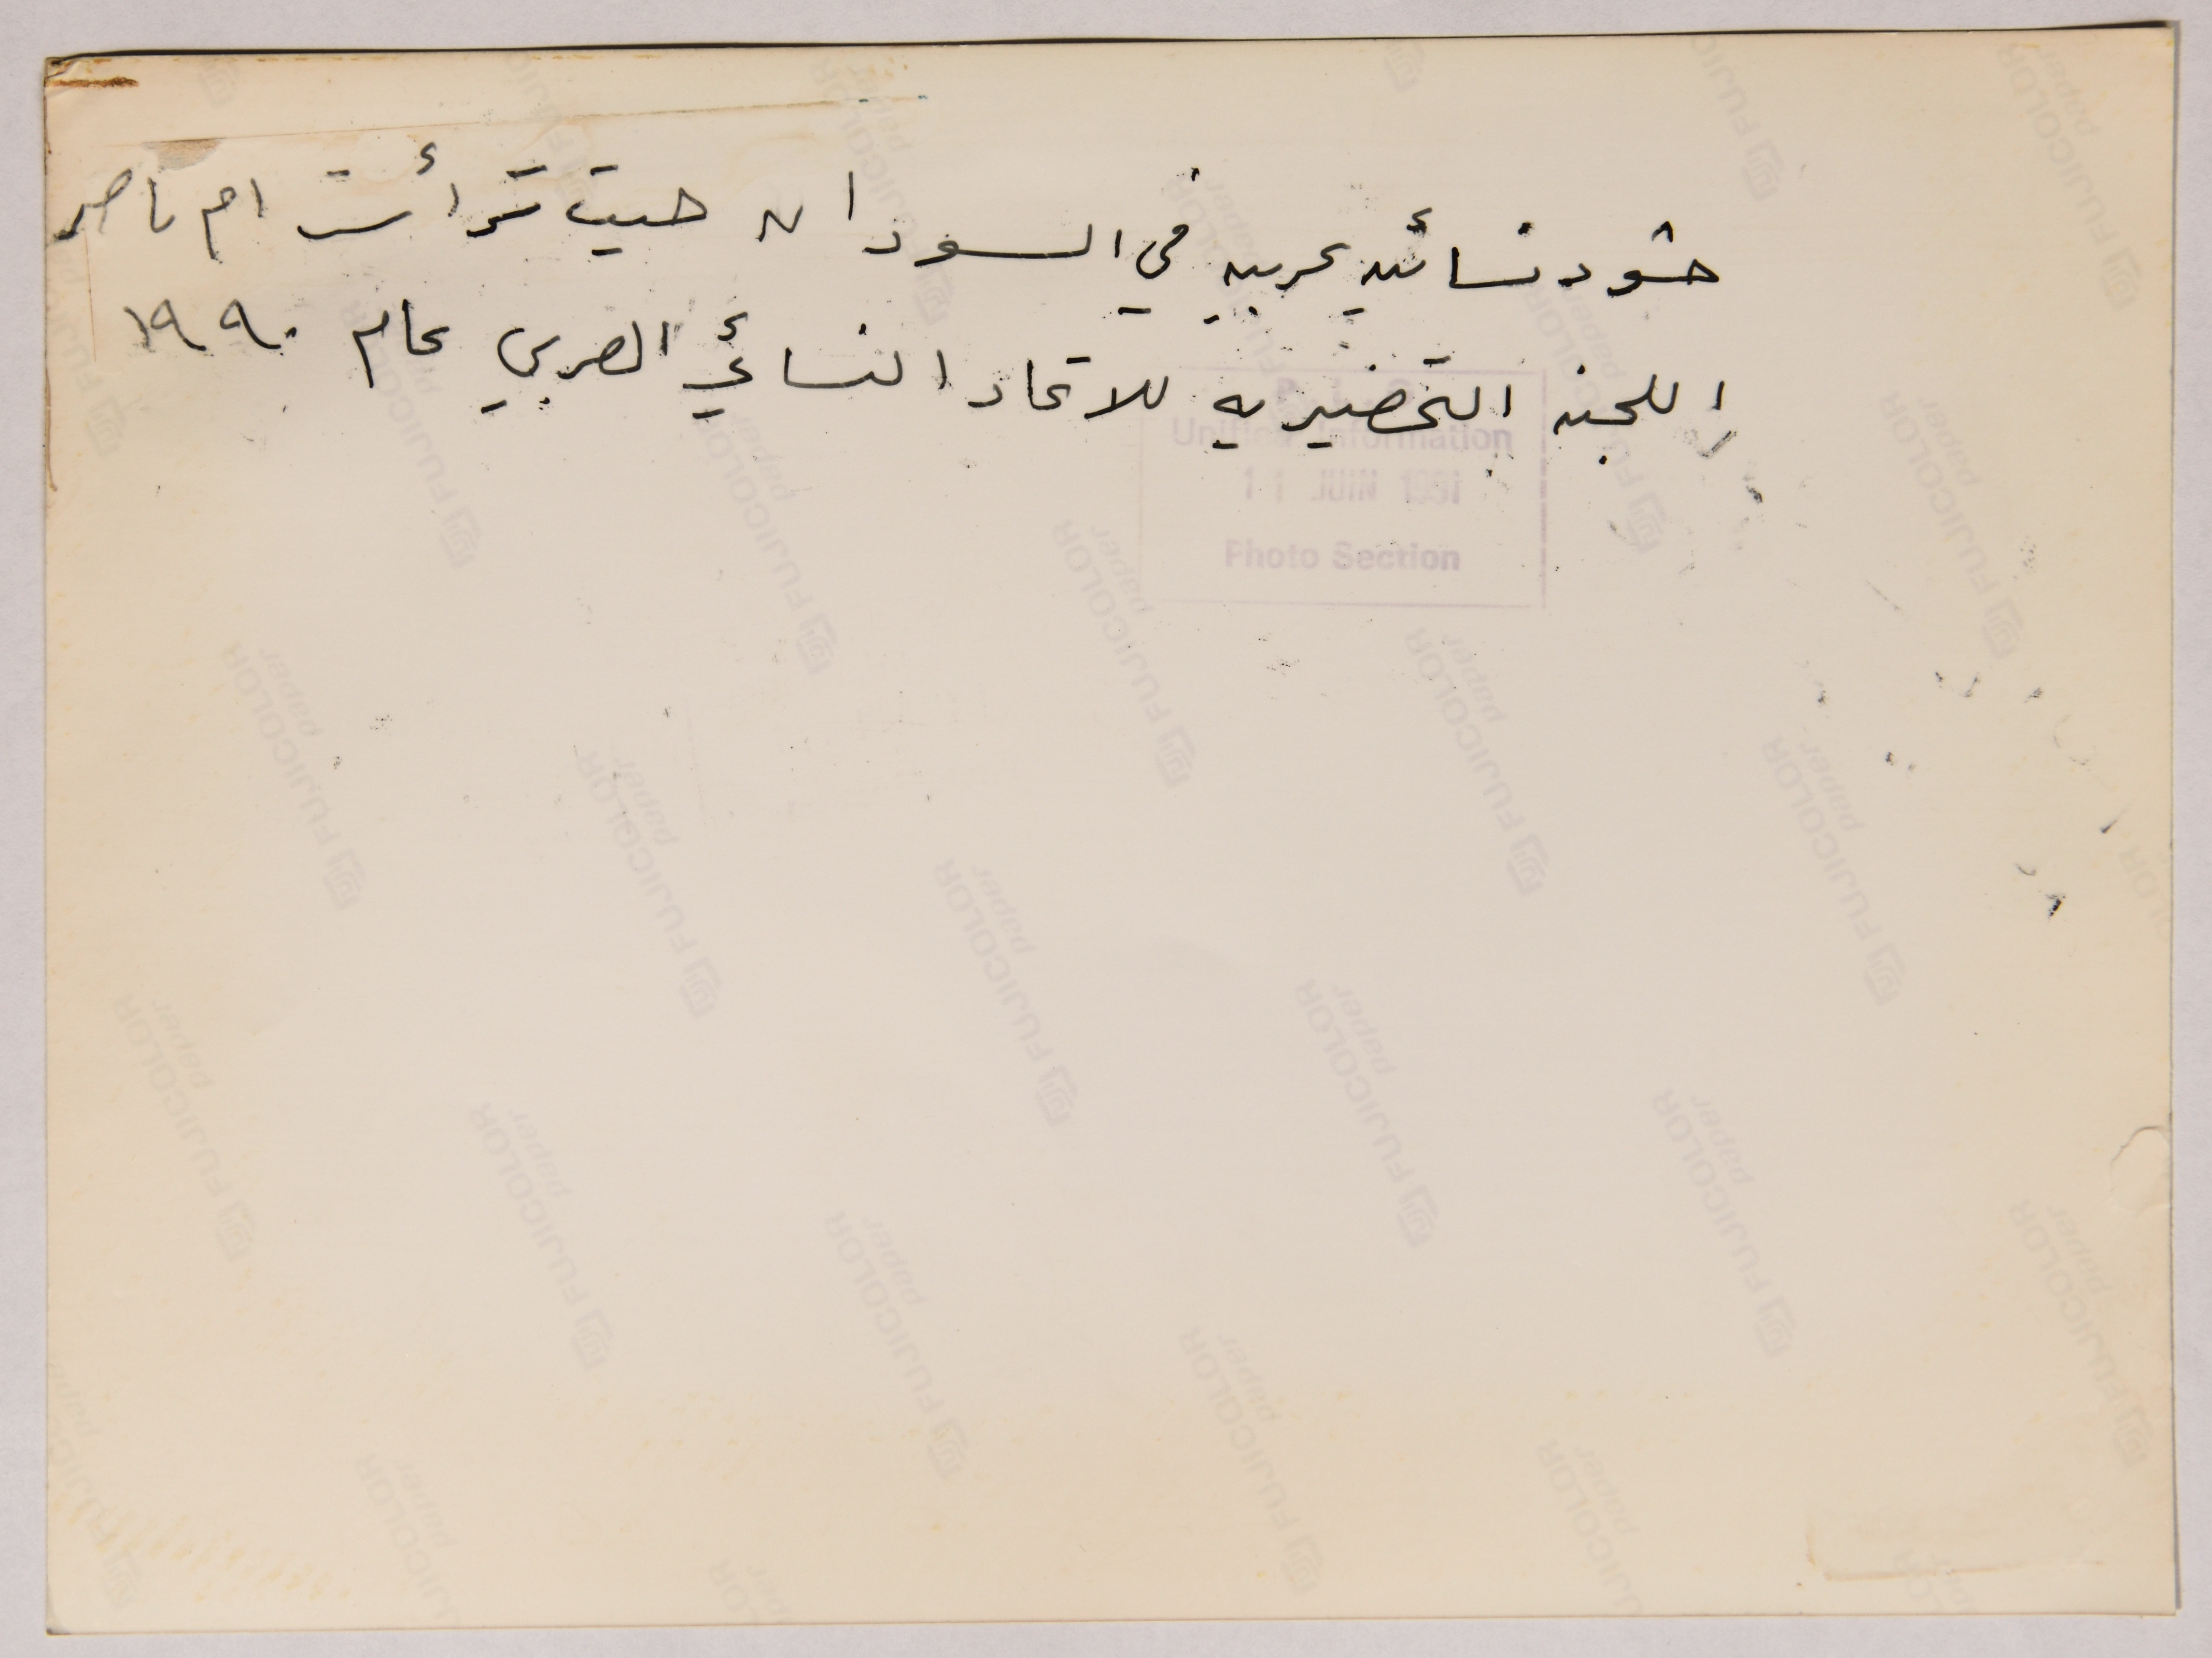 حشود نسائيه عربيه في السودان حيث ترأست ام ناصر
اللجنه التحضيريه للاتحاد النسائي العربي عام ١٩٩٠
P.L.O
Unified Information
11 JUIN 1991
Photo Section
FUJICOLOR paper